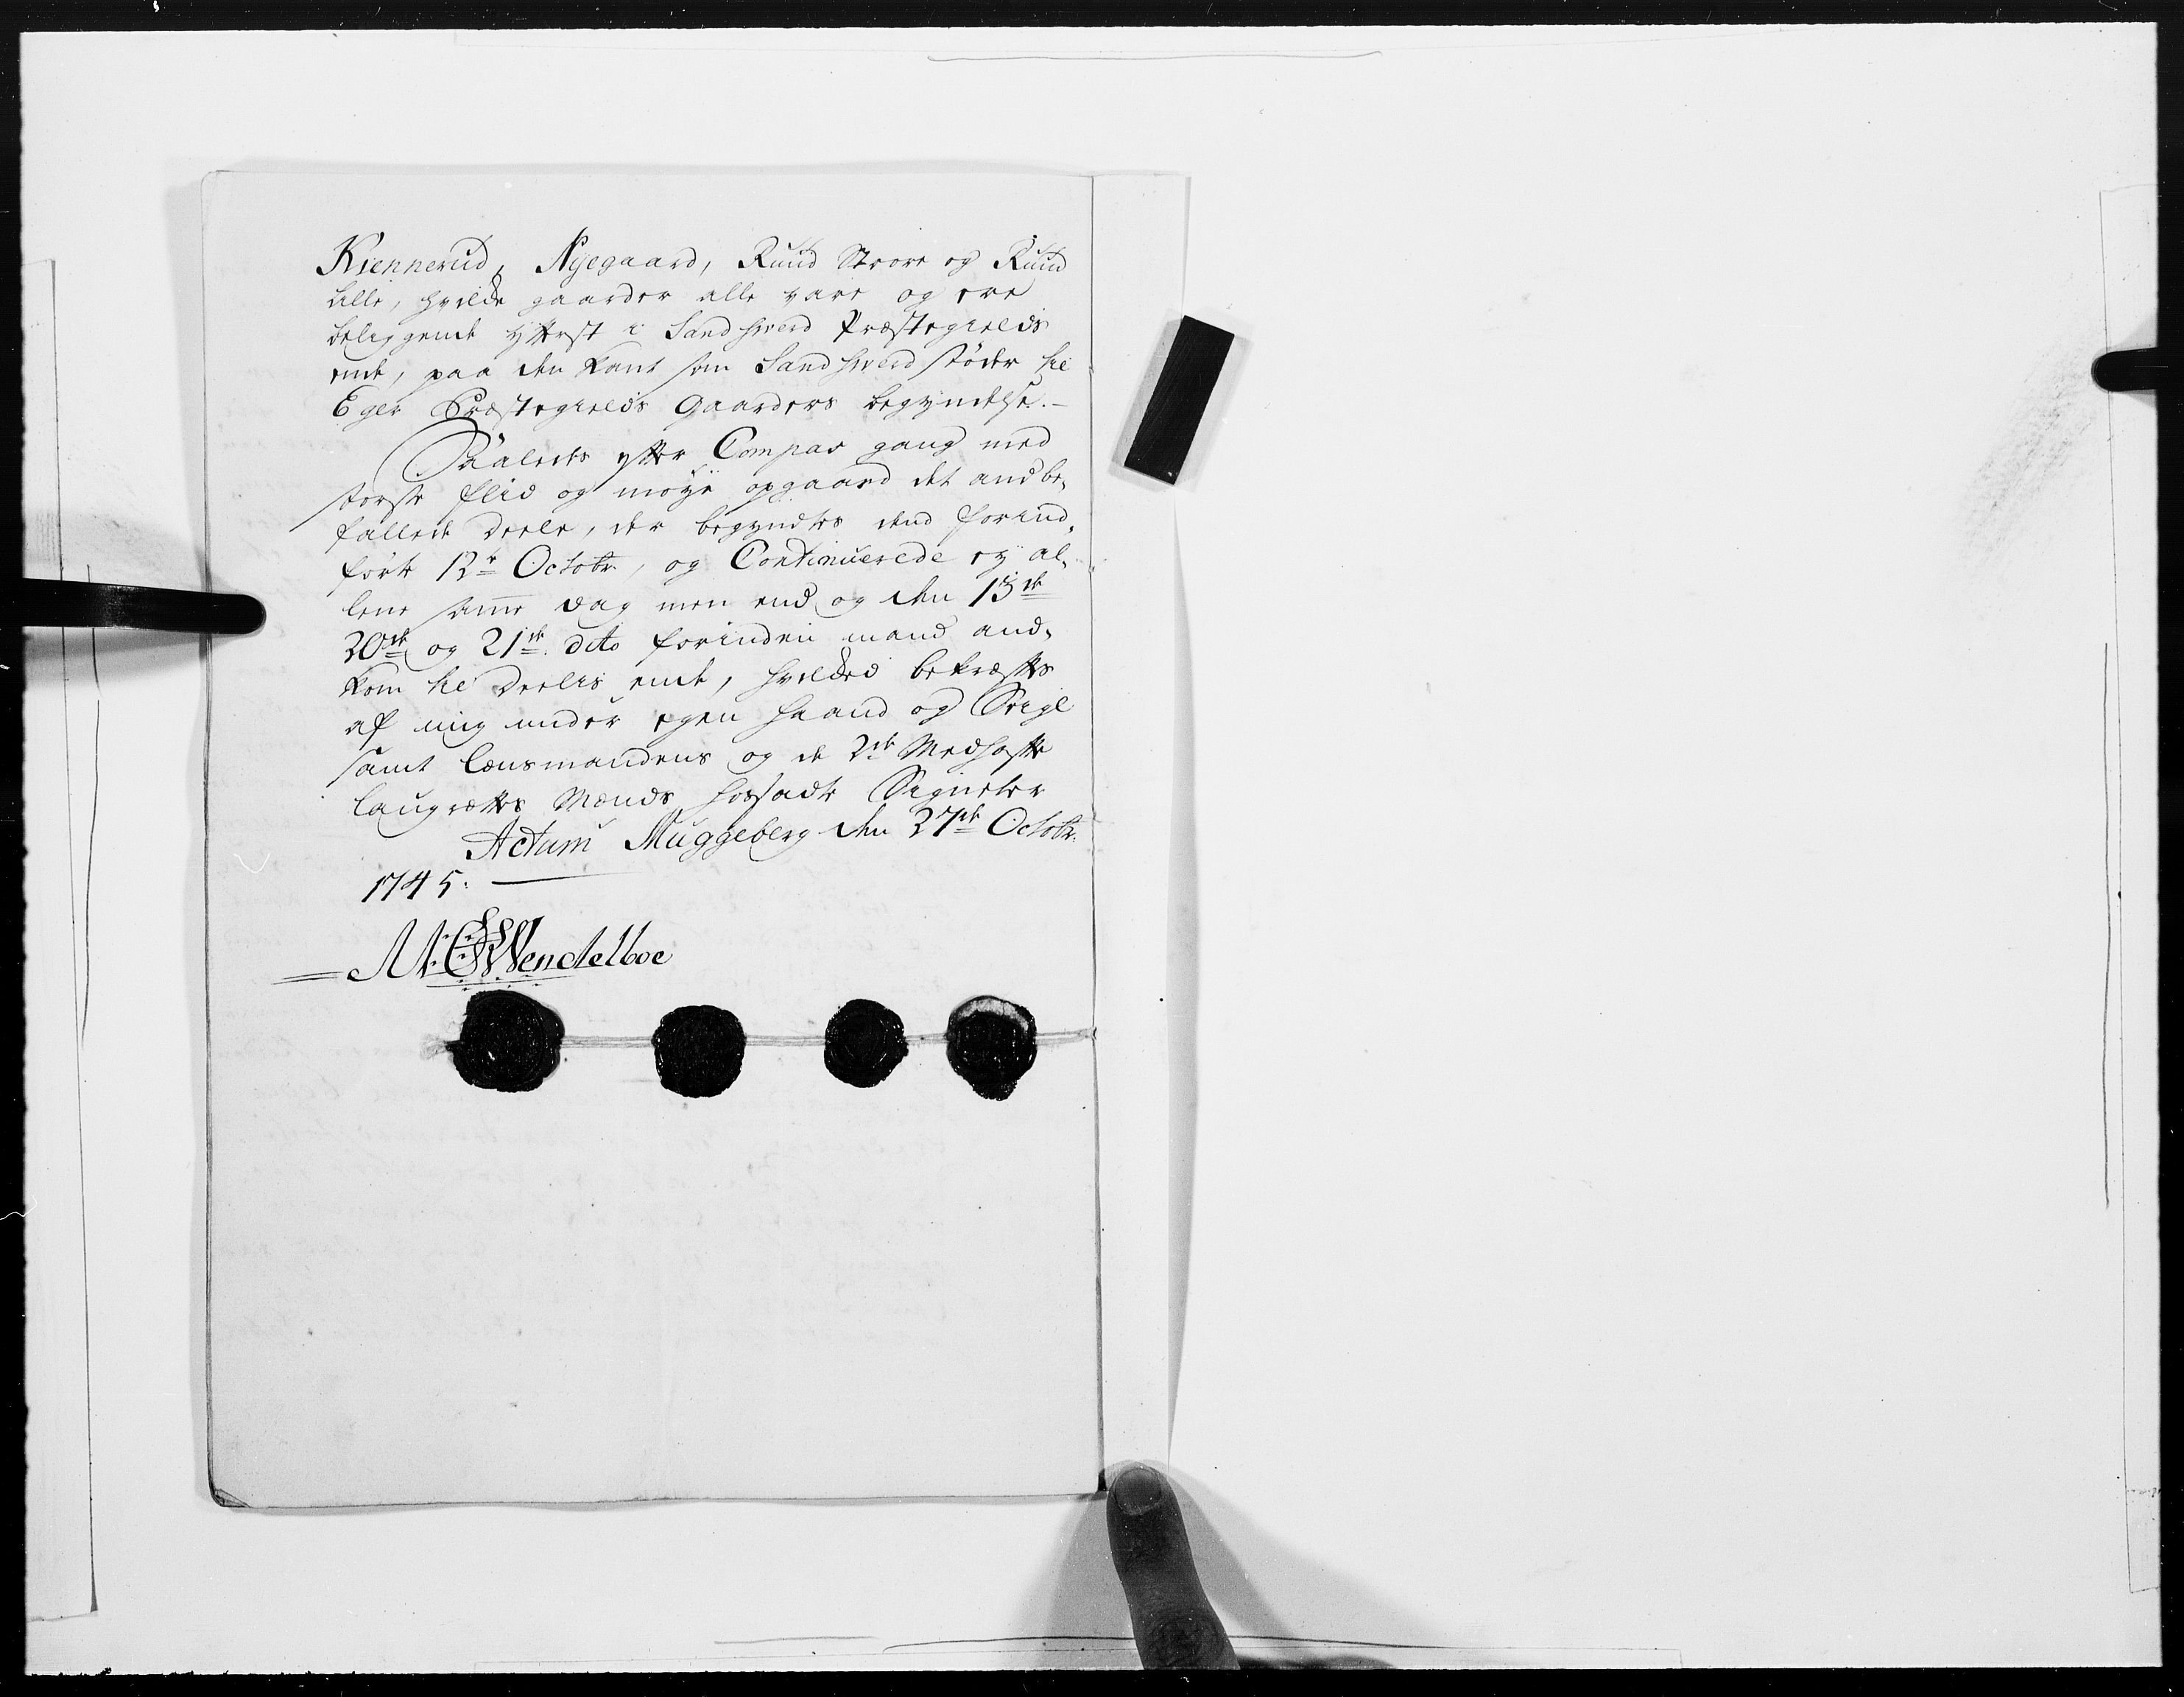 Kiennerud, Nyegaard, Ruud Store og Ruud
lille, hvilcke gaarder alle vare og ere
beliggende ytterst i Sandhverd Præstegields
ende, paa den kant som Sandhverd støder til
Eger Præstegields Gaarders begyndelse.
Saaledes efter Compas gang med
største flid og møye opgaaed det anbe-
fallede Deele, der begyndtes dend forind-
førte 12te Octobr, og Continuerede ey al-
lene samme dag men end og den 13de
20de og 21de dito forinden mand and-
kom til Deelis ende, hvilcked bekræftes
af mig under egen haand og Seigl
samt lænsmandens og de 2de Medhafte
laugrettes Mænds hossadte Signeter
Actum Muggeberg den 27de Octobr.
1745.
M. C. Wendelboe